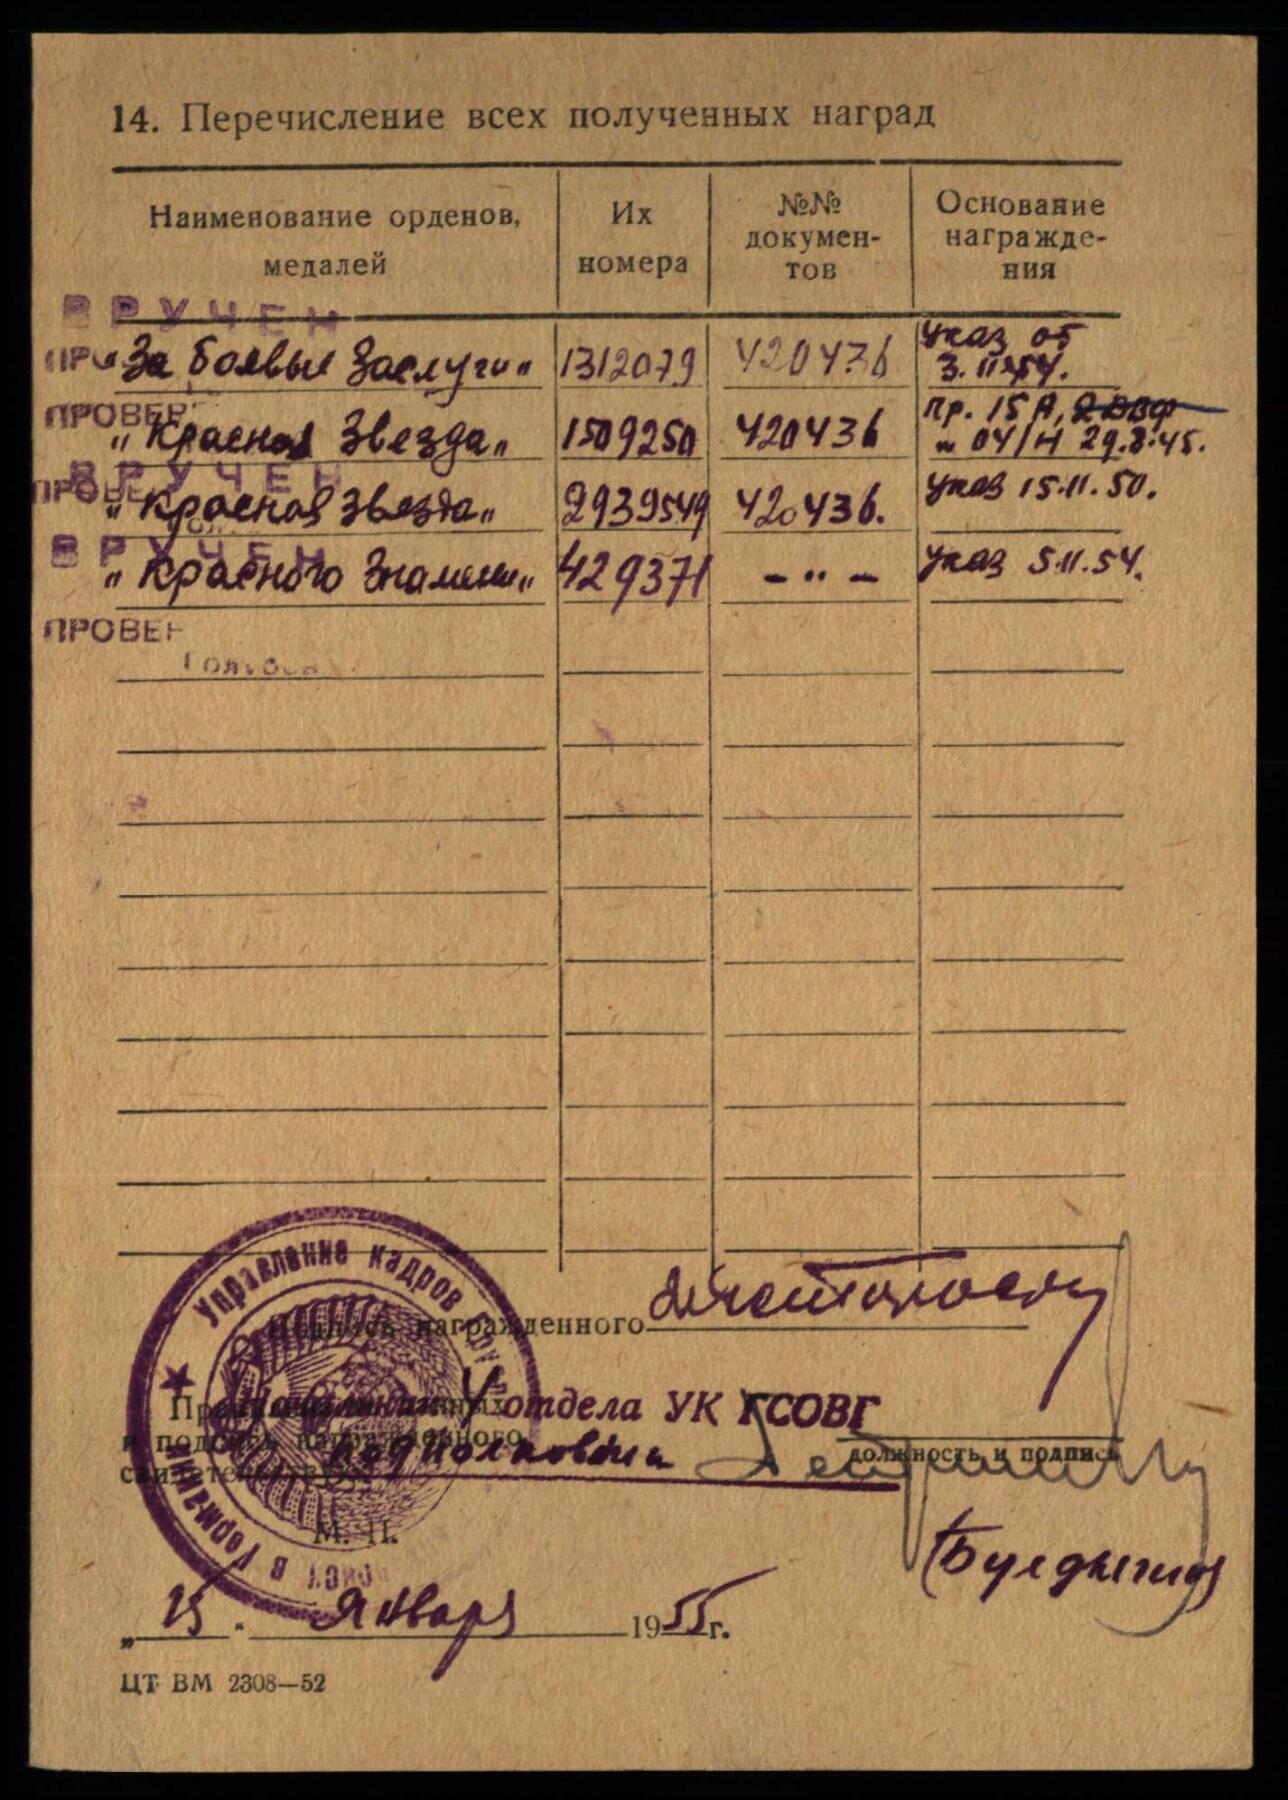 14. Перечисление всех полученных наград
Наименование орденов, медалей
Их номера
№№ докумен-
тов
Основание
награжде-
ния
ВРУЧЕН
"За боевые Заслуги" 1312079 420436 Указ от
3.11.54.
ПРОВЕР
"Красная Звезда" 1509250 420436 пр. 15 А,
04/Н 29.8.45.
ВРУЧЕН
ПРОВЕ
"Красная Звезда" 2939549 420436. Указ 15.11.50.
ВРУЧЕН
"Красного Знамени" 429371 - " - Указ 5.11.54.
ПРОВЕР
Подпись награжденного
Управление кадров
войск в Германии
отдела УК ГСОВГ
и подпись награжденного
подполковник
должность и подпись
свидетельствую
М. П.
(Булдыгин)
"25" Января 1955 г.
ЦТ ВМ 2308—52